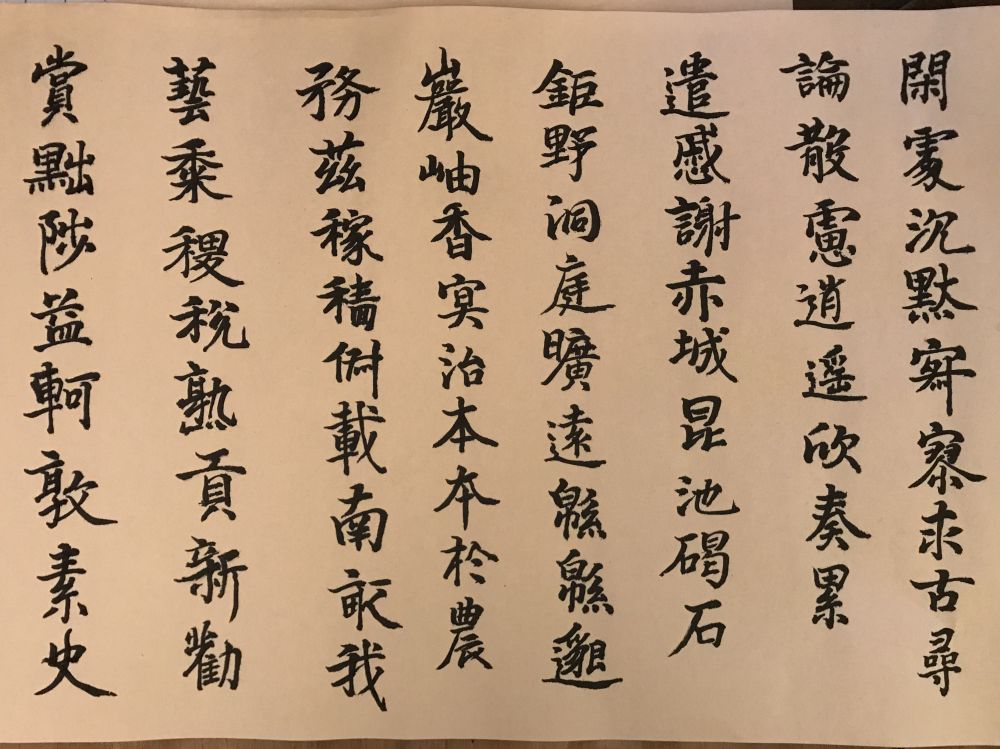 閑處沉默寂寥求古尋
論散慮逍遥欣奏累
遣慼謝赤城昆池碣石
鉅野洞庭曠遠緜緜邈
巖岫杳冥治本本於農
務茲稼穡俶載南畝我
藝黍稷稅熟貢新勸
賞黜陟益軻敦素史